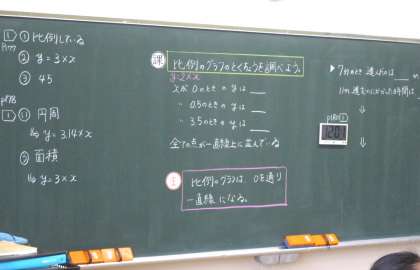 1 ① 比例している
P177
② y=3×x
③ 45
P178
1 ① 円周
⇒ y=3.14×x
② 面積
⇒ y=3×x
課 比例のグラフのとくちょうを調べよう。
y=2×x
xが0のときのyは
〃 0.5のときのyは
〃 3.5のときのyは
全ての点が一直線上に並んでいる
比例のグラフは、0を通り
一直線になる。
▶ 7分のとき 進んだのは
m進むのにかかった時間は
↓
↓